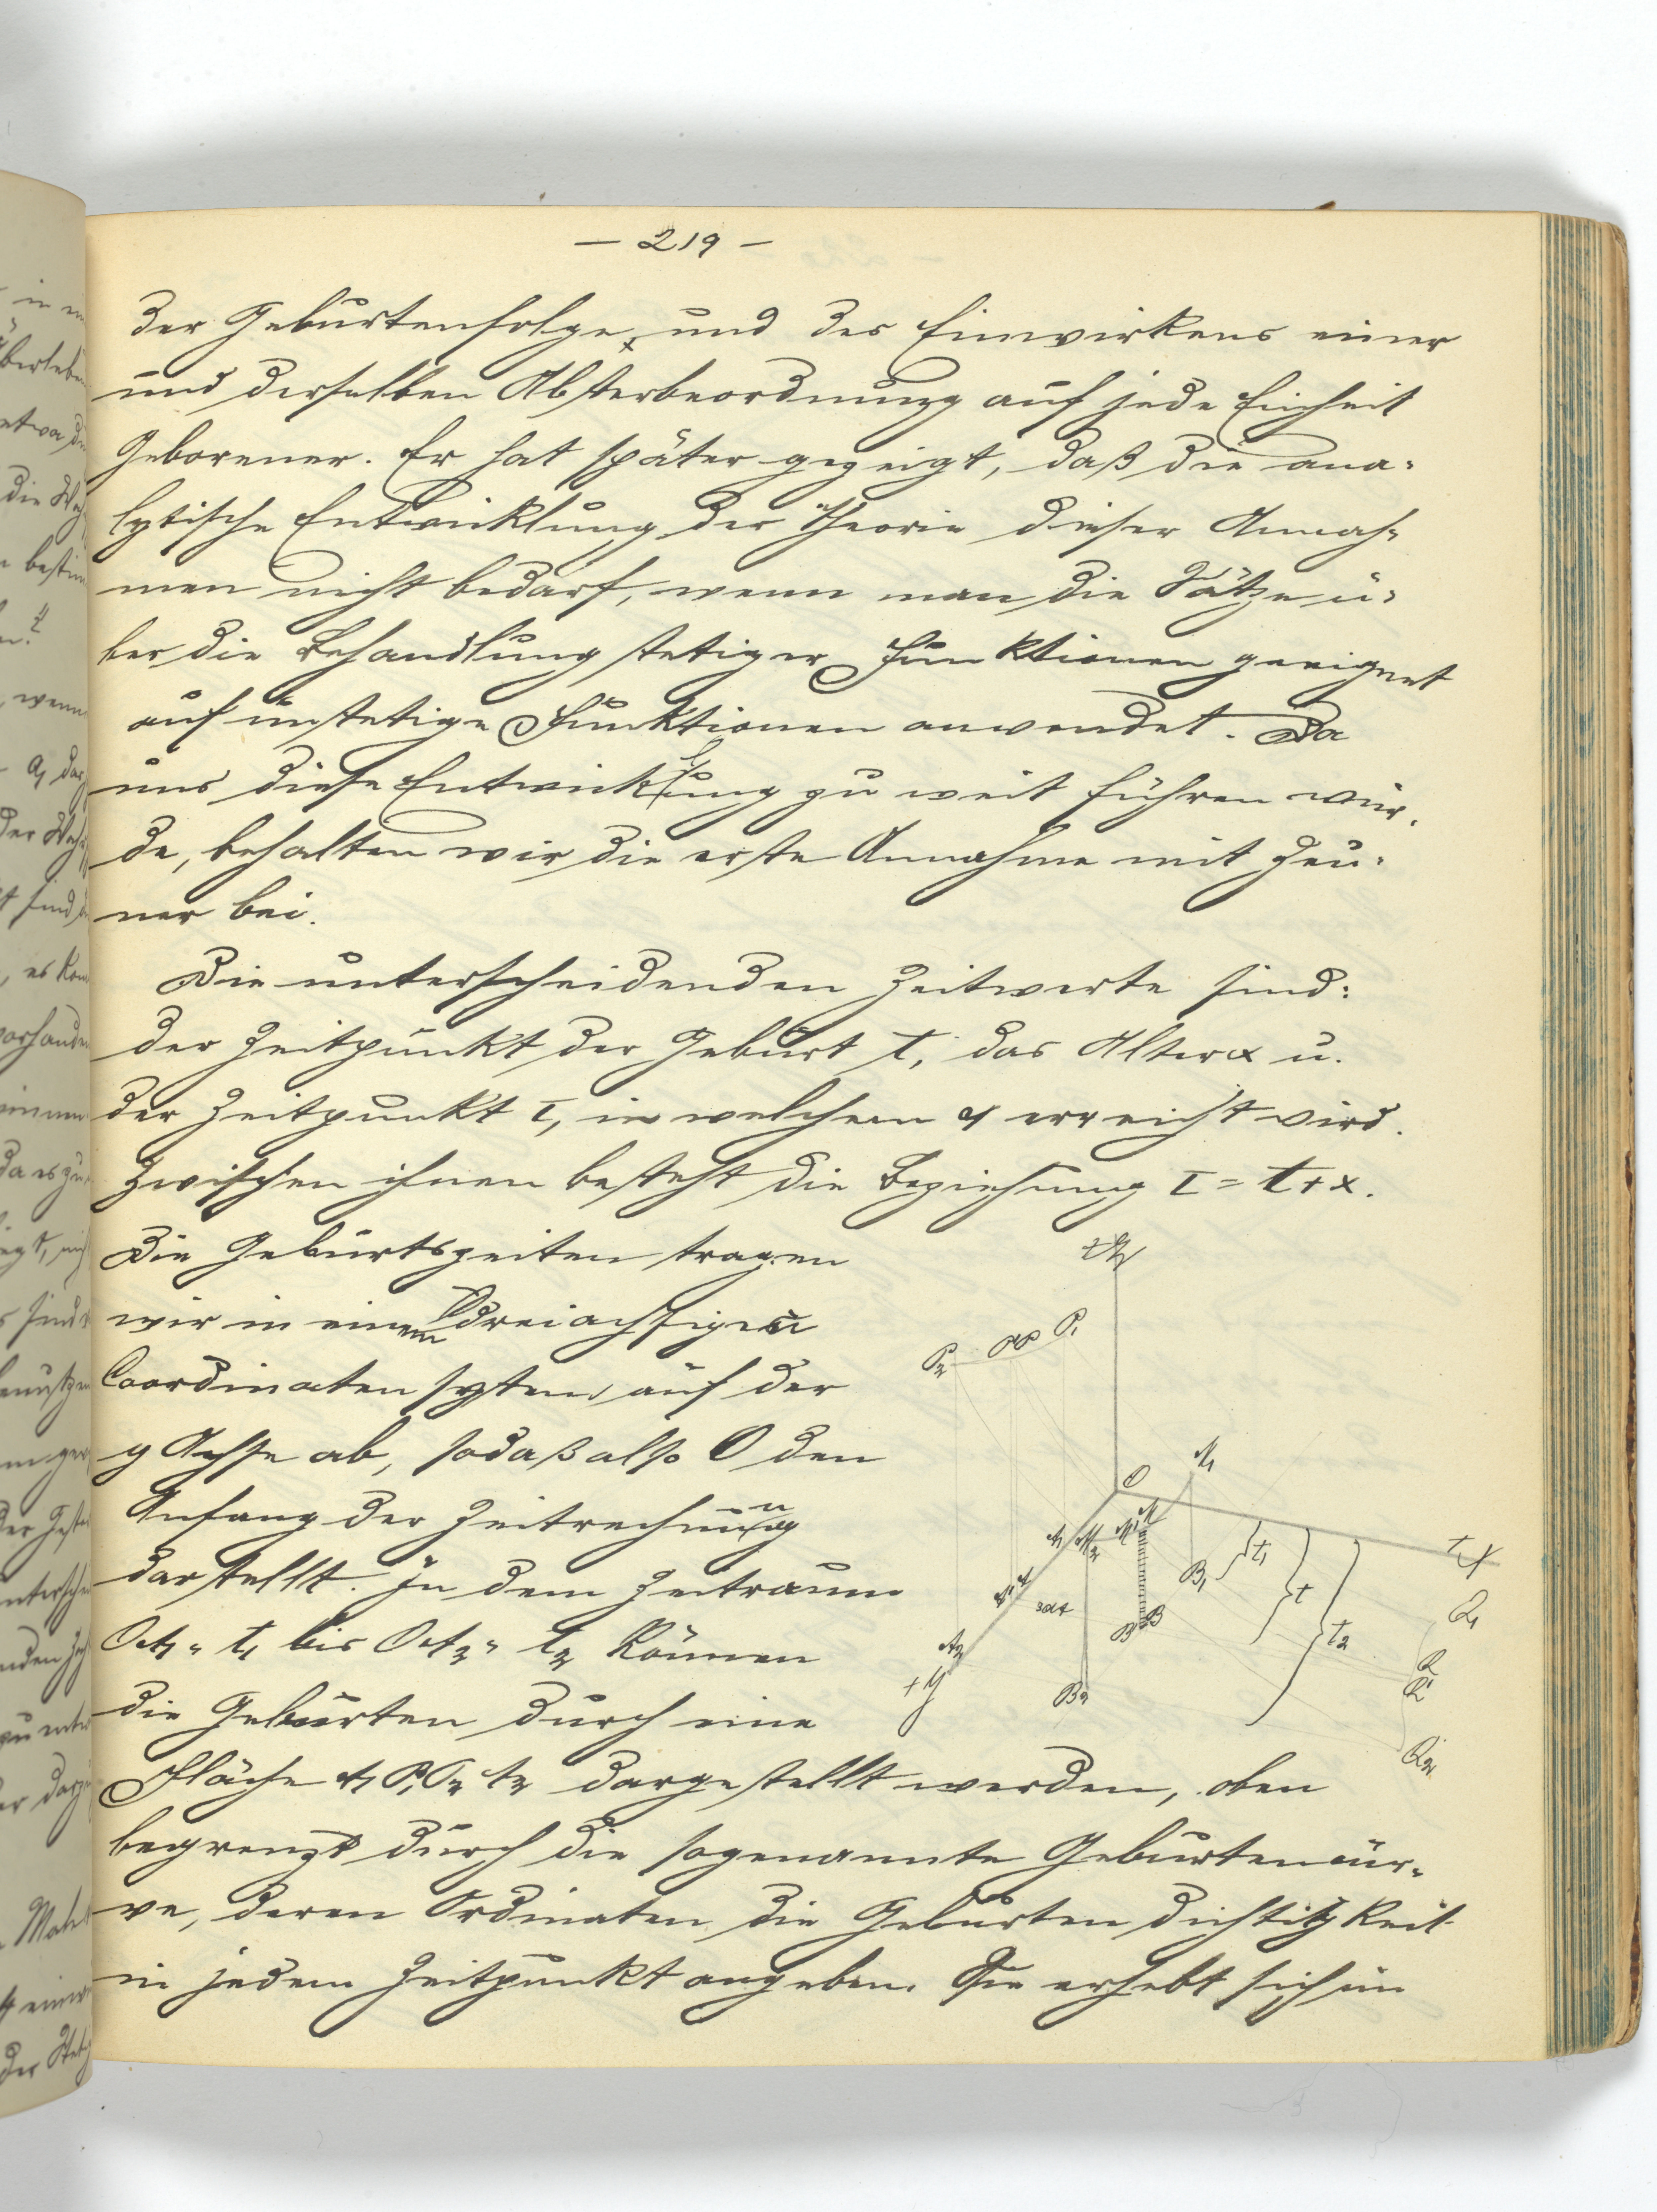 — 219 —
der Geburtenfolge, und des Einwirkens einer
und derselben Absterbeordnung auf jede Einheit
Geborener. Er hat später gezeigt, daß die ana-
lytische Entwicklung der Theorie dieser Annah-
men nicht bedarf, wenn man die Sätze ü-
ber die Behandlung stetiger Funktionen geeignet
auf unstetige Funktionen anwendet. Da
uns diese Entwicklung zu weit führen wür-
de, behalten wir die erste Annahme mit Zeu-
ner bei.
Die unterscheidenden Zeitwerte sind:
der Zeitpunkt der Geburt t, das Alter x u.
der Zeitpunkt τ, in welchem x erreicht wird.
Zwischen ihnen besteht die Beziehung τ = t + x.
Die Geburtszeiten tragen
wir in einem dreiachsigen
Coordinatensystem auf der
y Achse ab, sodaß also O den
Anfang der Zeitrechnung
darstellt. In dem Zeitraum
OA1 = t1 bis OA2 = t2 können
die Geburten durch eine
Fläche A1 P1 P2 A2 dargestellt werden, oben
begrenzt durch die sogenannte Geburtencur-
ve, deren Ordinaten die Geburtendichtigkeit
in jedem Zeitpunkt angeben. Sie erhebt sich im
+Z
P2
P1
O
M1
A1
M2
B1
t1
t
t2
+X
Q1
A2
+Y
B2
B
Q2